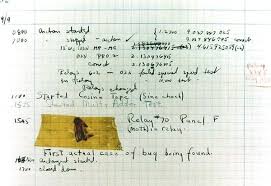 9/9
0800 Antan started
1000 stopped - antan ✓
13"uc (032) MP-MC
033 PRO 2 2.130476415
conect 2.130676415
Relays 6-2 in 033 failed special speed test
in Relay
Relays changed
1100 Started Cosine Tape (Sine check)
1525 Started Multi Adder Test
1545 Relay #70 Panel F
(moth) in relay.
First actual case of bug being found.
antangent started.
1700 closed down.